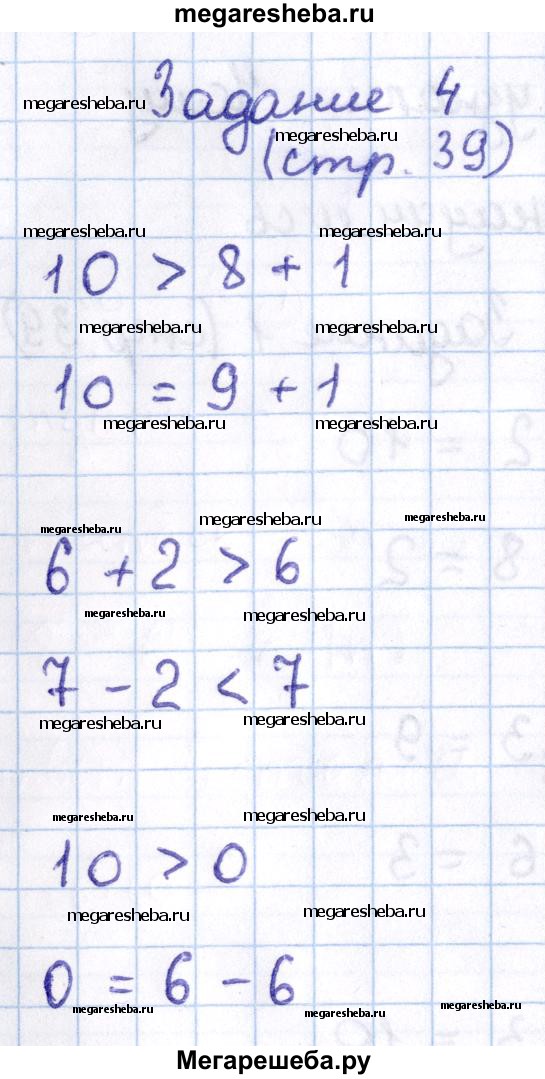 megaresheba.ru
megaresheba.ru Задание 4
megaresheba.ru
(стр. 39)
megaresheba.ru megaresheba.ru
10 > 8 + 1
megaresheba.ru megaresheba.ru
10 = 9 + 1
megaresheba.ru megaresheba.ru
megaresheba.ru megaresheba.ru megaresheba.ru
6 + 2 > 6
megaresheba.ru megaresheba.ru
7 - 2 < 7
megaresheba.ru megaresheba.ru
megaresheba.ru megaresheba.ru
10 > 0
megaresheba.ru megaresheba.ru
0 = 6 - 6
megaresheba.ru megaresheba.ru megaresheba.ru
Мегарешеба.ру